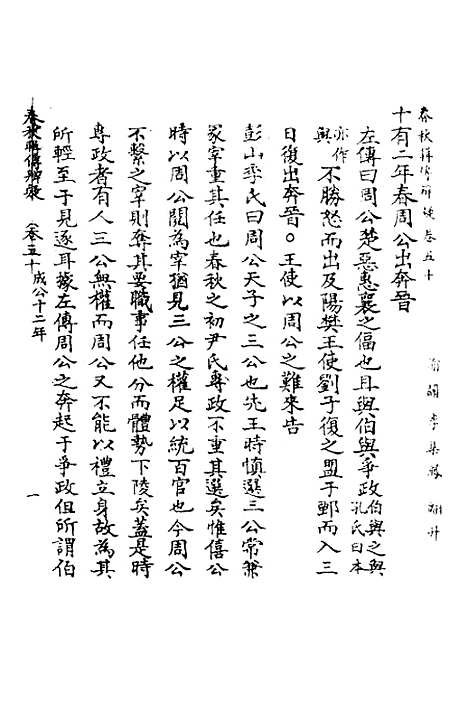 春秋辑傳辨疑卷五十
十有二年春周公出奔晉
左傳曰周公楚惡惠襄之偪也且與伯與爭政伯與之與孔氏曰本
亦作輿不勝怒而出及陽樊王使劉子復之盟于鄄而入三
日復出奔晉○王使以周公之難來告
彭山季氏曰周公天子之三公也先王時慎選三公常兼
冢宰重其任也春秋之初尹氏專政不重其選矣惟僖公
時以周公閱為宰猶見三公之權足以統百官也今周公
不繫之宰則奪其要職事任他分而體勢下陵矣蓋是時
專政者有人三公無權而周公又不能以禮立身故為其
所輕至于見逐耳蒙左傳周公之奔起于爭政但所謂伯
春秋輯傳辨疑 卷五十 成公十二年 一